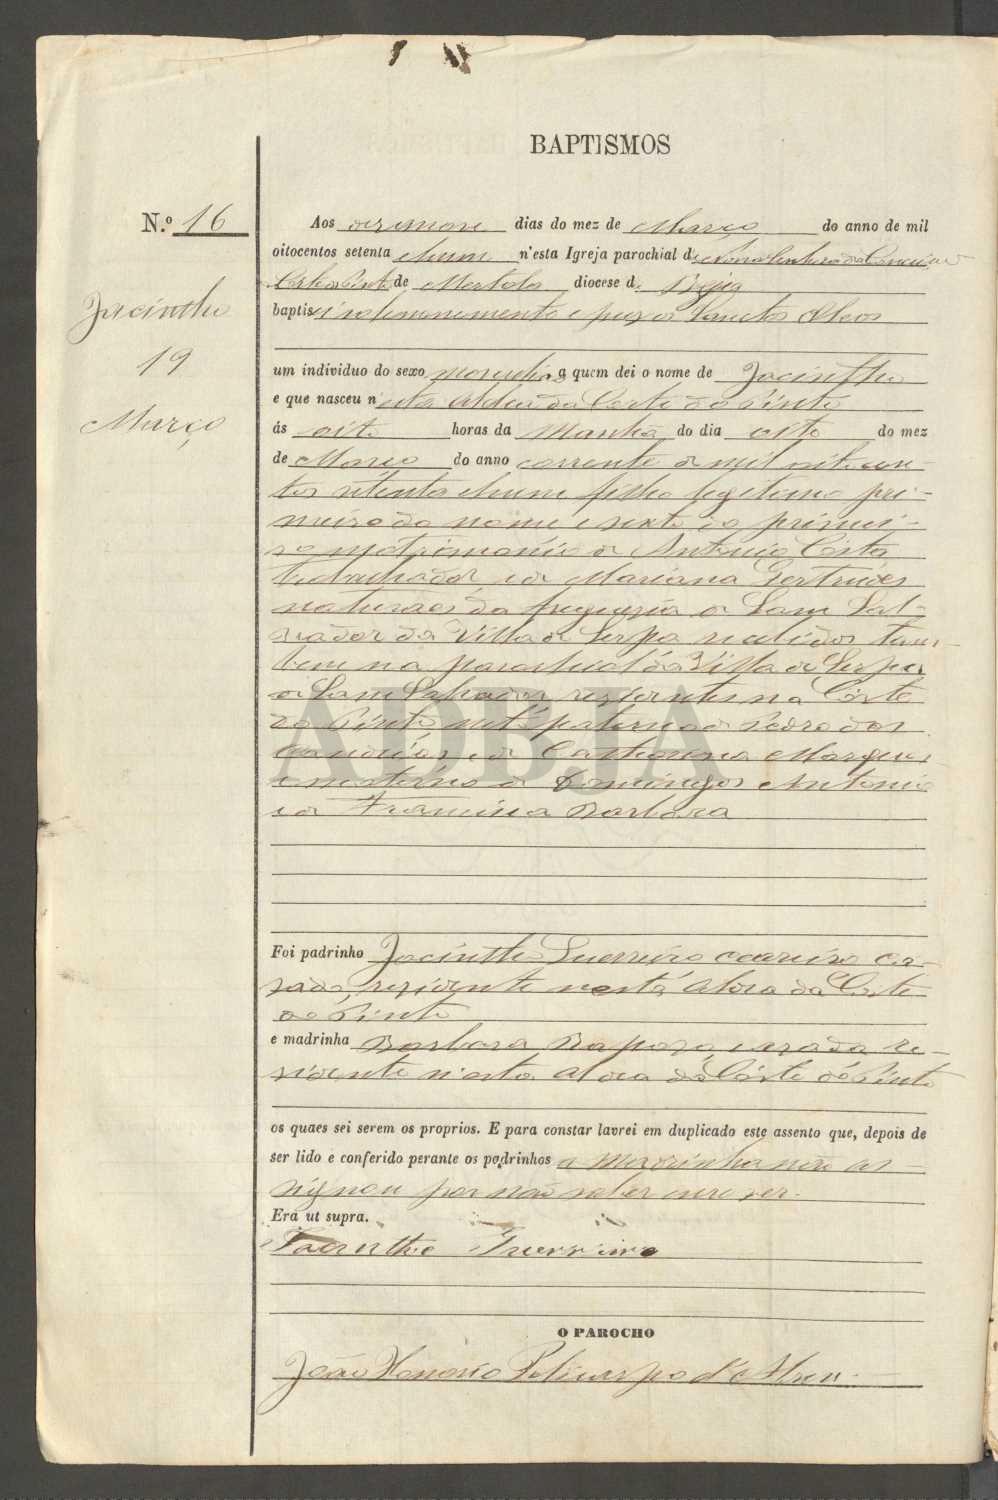 BAPTISMOS
N.º 16
Jacintho
19
Março
Aos dezenove dias do mez de Março do anno de mil
oitocentos setenta e hum n'esta Igreja parochial de Nossa Senhora da Conceição
Corte do Pinto de Mertola diocese de Beja
baptisei solemnemente e puz os Sanctos Oleos
um individuo do sexo masculino a quem dei o nome de Jacintho
e que nasceu n'esta Aldea da Corte do Pinto
ás oito horas da Manhã do dia oito do mez
de Março do anno corrente de mil oitocen-
tos setenta e hum filho legitimo pri-
meiro do nome e sexto do primei-
ro matrimonio de Antonio Costa
trabalhador e de Mariana Gertrudes
naturaes da freguezia de Sam Sal-
vador da Villa de Serpa recebidos tam-
bem na parochial da Villa de Serpa
de Sam Salvador rezidentes na Corte
do Pinto neto paterno de Pedro dos
e de Catharina Marques
e materno de Domingos Antonio
e de Francisca Barbara
Foi padrinho Jacintho Guerreiro ca-
zado rezidente nesta Aldea da Corte
do Pinto
e madrinha Barbara Rapoza cazada re-
zidente n'esta Aldea da Côrte do Pinto
os quaes sei serem os proprios. E para constar lavrei em duplicado este assento que, depois de
ser lido e conferido perante os padrinhos a Madrinha não as-
signou por não saber escrever.
Era ut supra.
Jacintho Guerreiro
O PAROCHO
João Honorio Policarpo d'Abreu
ADBJA